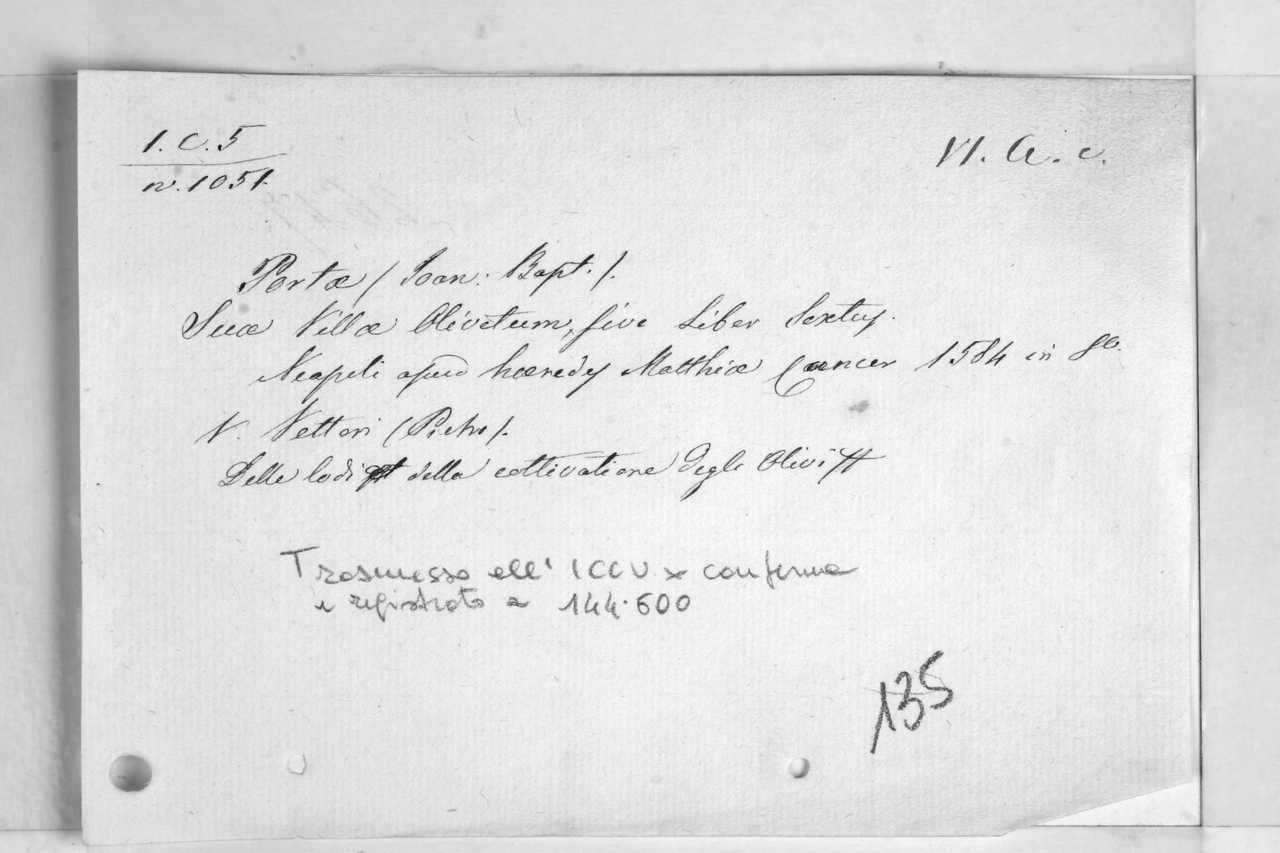 1. C. 5
n. 1051.
VI. A. c.
Portæ (Joan: Bapt.).
Suæ Villæ Olivetum, sive Liber Sextus.
Neapoli apud hæredes Matthiæ Cancer 1584 in 8º.
V. Vettori (Pietro).
Delle lodi della coltivatione degli Olivi
Trasmesso all' ICCU x conferma
e registrato a 144.600
135